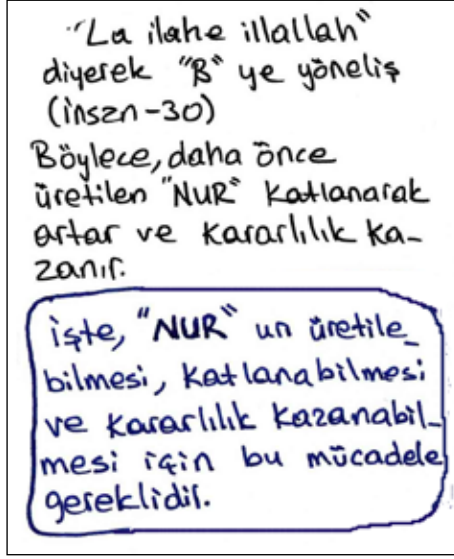 "La ilahe illallah"
diyerek "B" ye yöneliş
(İnsan-30)
Böylece, daha önce
üretilen "NUR" katlanarak
artar ve kararlılık ka-
zanır.
işte, "NUR" un üretile_
bilmesi, katlanabilmesi
ve kararlılık kazanabil_
mesi için bu mücadele
gereklidir.